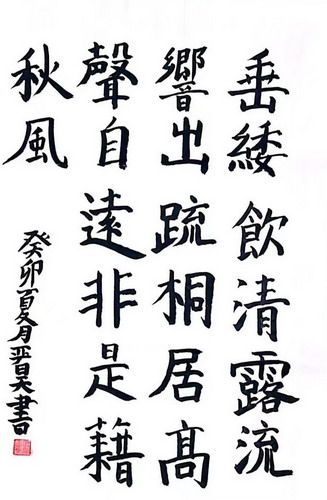 垂緌飲清露流
響出疏桐居高
聲自遠非是藉
秋風
癸卯夏月晋昊書